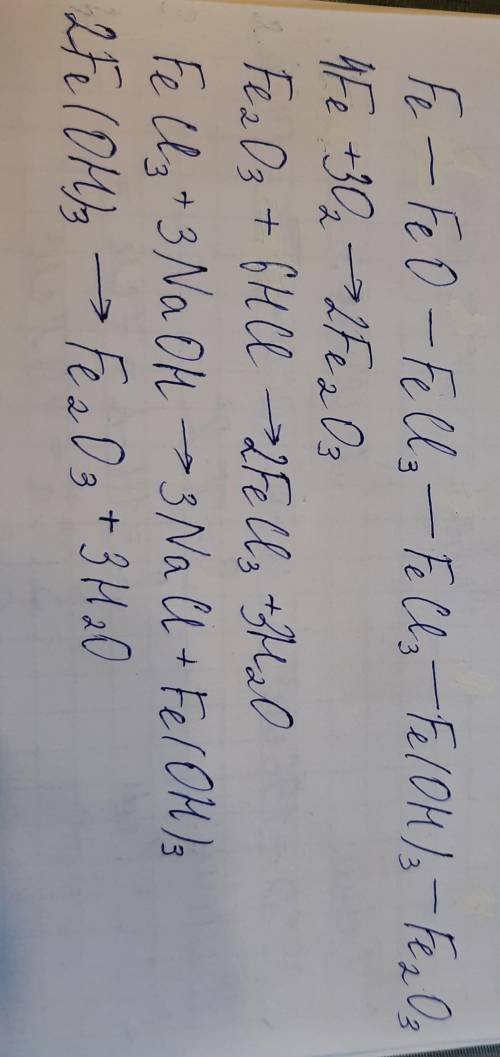 Fe — FeO — FeCl₃ — FeCl₃ — Fe(OH)₃ — Fe₂O₃
4Fe + 3O₂ → 2Fe₂O₃
Fe₂O₃ + 6HCl → 2FeCl₃ + 3H₂O
FeCl₃ + 3NaOH → 3NaCl + Fe(OH)₃
2Fe(OH)₃ → Fe₂O₃ + 3H₂O